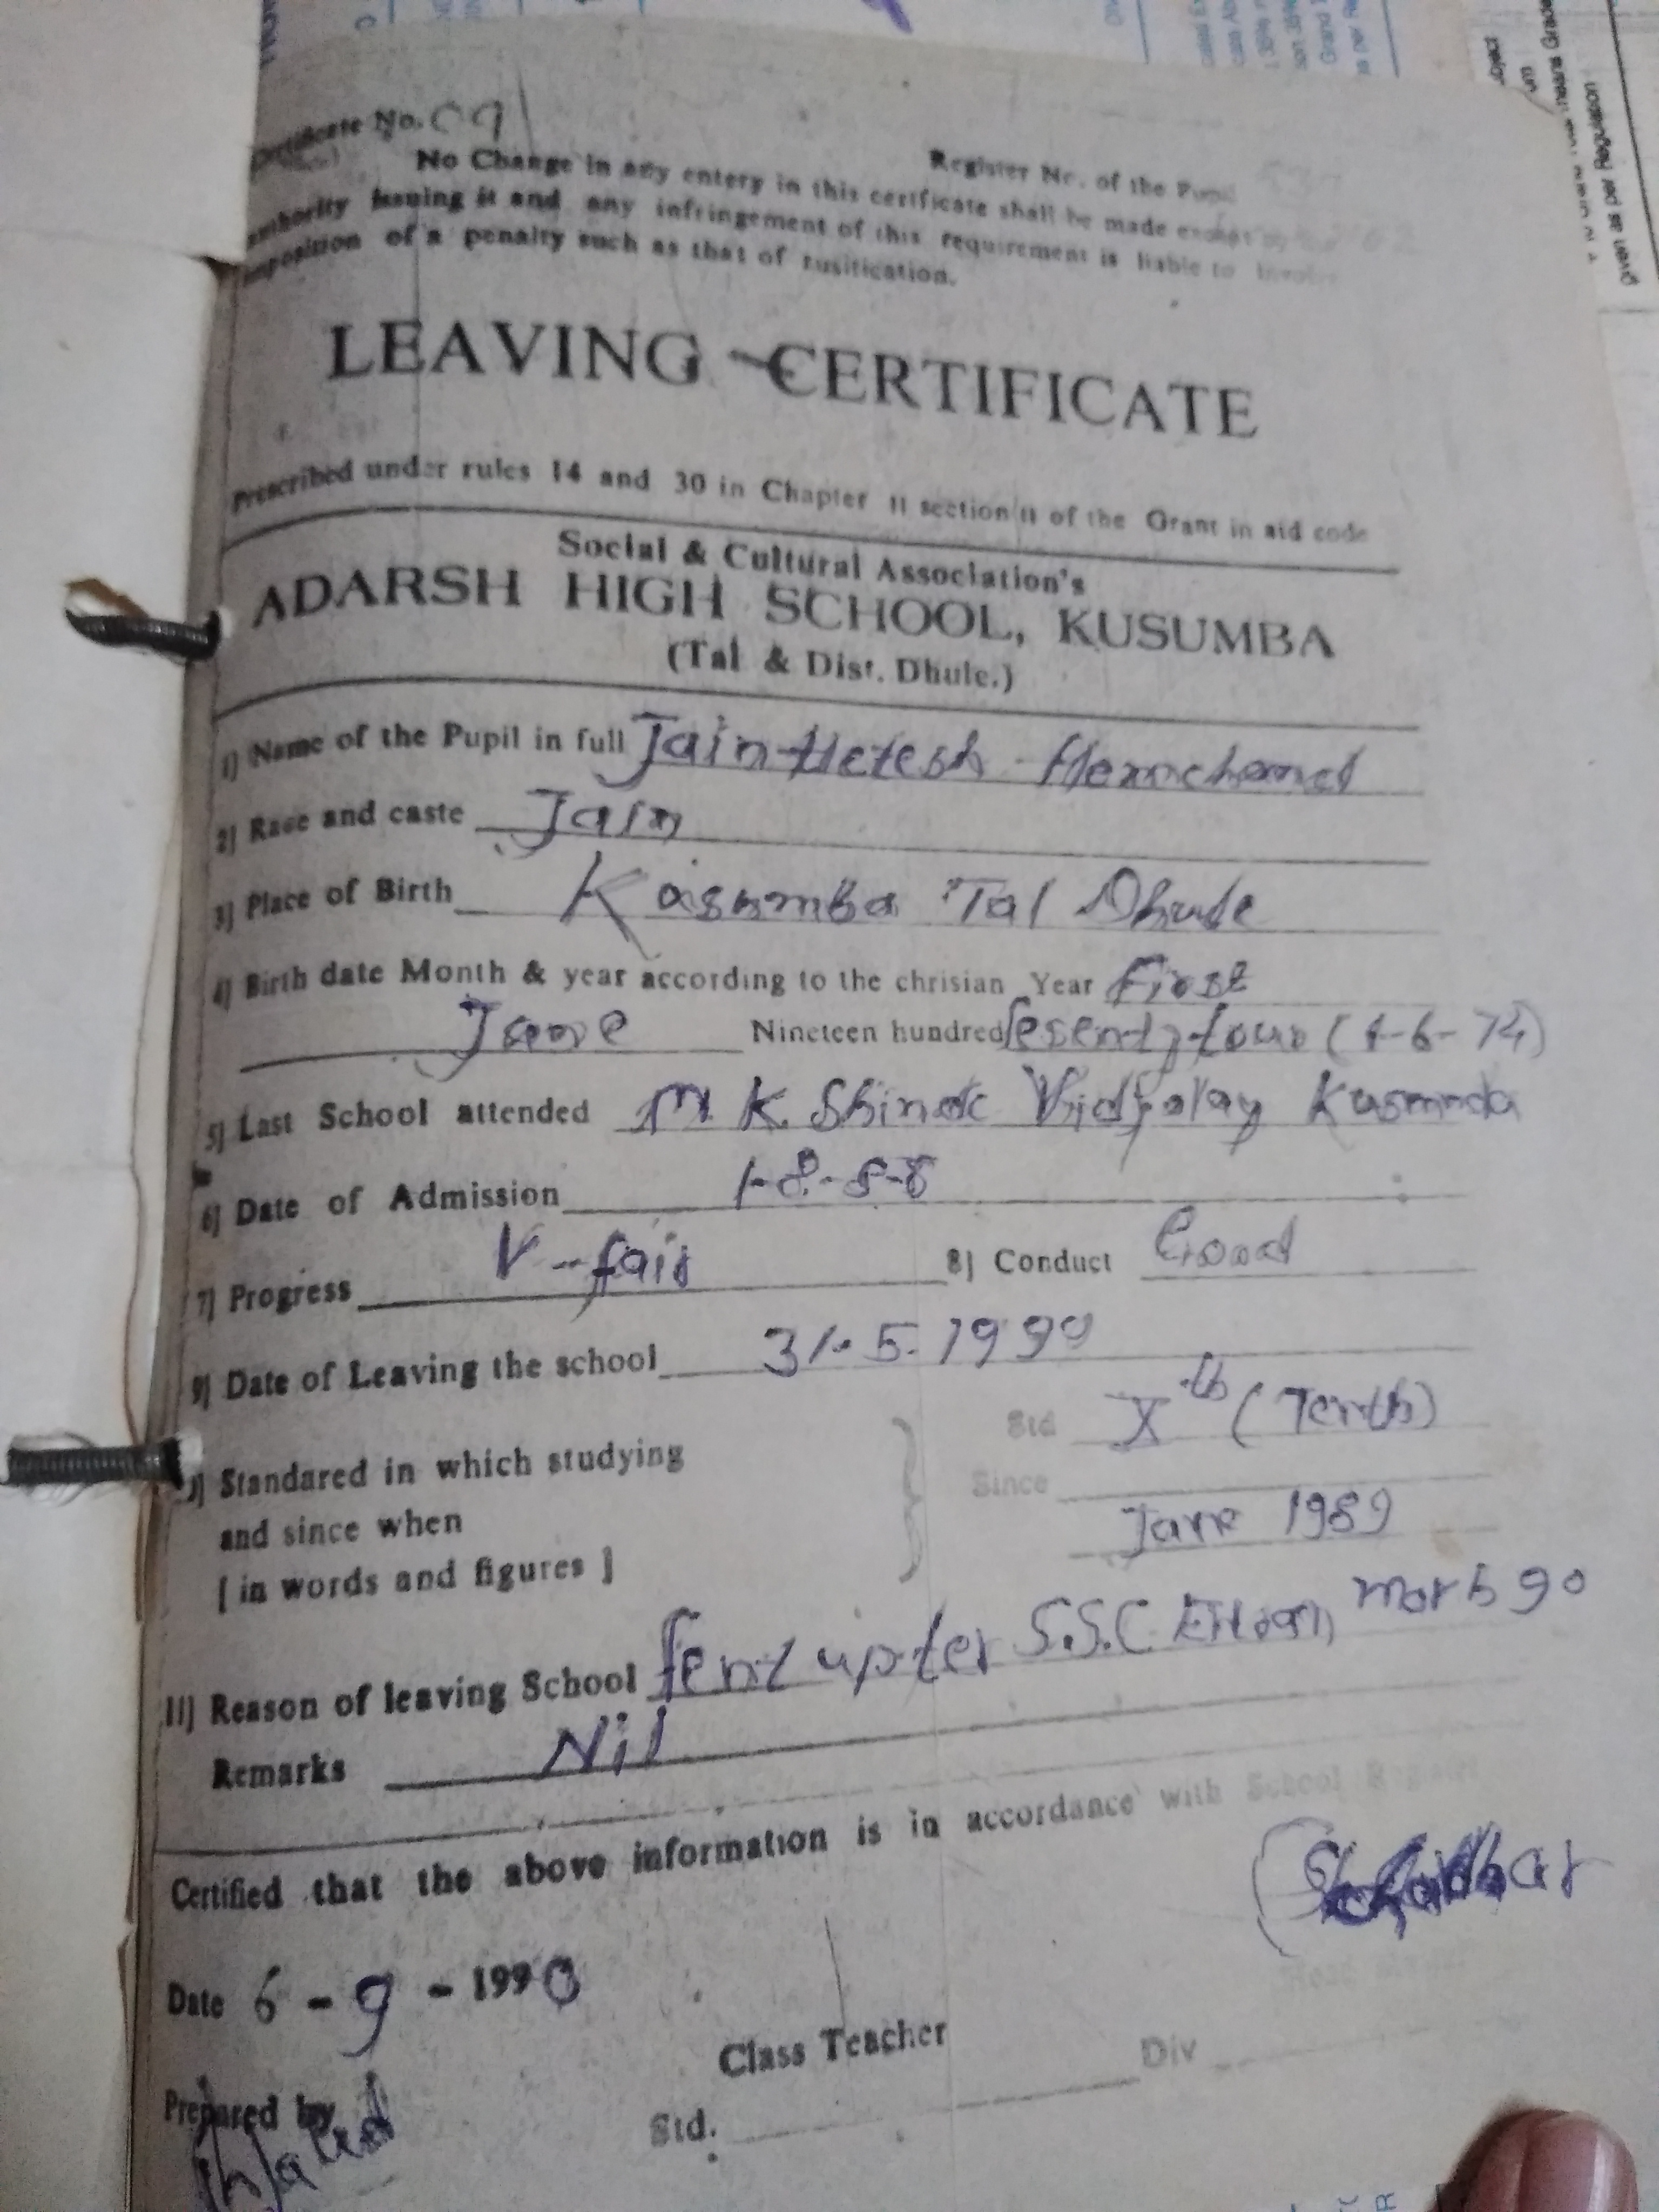 Certificate No. 09
Register No. of the Pupil
No Change in any entery in this certficate shall be made except by the
authority issuing it and any infringement of this requirement is liable to involve
imposition of a penalty such as that of rusitication.
LEAVING CERTIFICATE
Prescribed under rules 14 and 30 in Chapter II section II of the Grant in aid code
Social & Cultural Association's
ADARSH HIGH SCHOOL, KUSUMBA
(Tal & Dist. Dhule.)
1) Name of the Pupil in full Jain Hetesh Hemchand
2) Race and caste Jain
3) Place of Birth Kasumba Tal Dhule
4) Birth date Month & year according to the chrisian Year First
June Nineteen hundred Sesenty four (1-6-74)
5) Last School attended M. K. Shinde Vidyalay Kusumba
6) Date of Admission 1-8-88
7) Progress V-fair 8) Conduct Good
9) Date of Leaving the school 31.5.1990
Std Xth (Tenth)
10) Standared in which studying
Since
and since when
June 1989
[ in words and figures ]
11) Reason of leaving School Sent up ter S.S.C. Exam March 90
Remarks Nil
Certified that the above information is in accordance with School Register
Date 6 - 9 - 1990
Head Master
Class Teacher
Prepared by
Std. Div